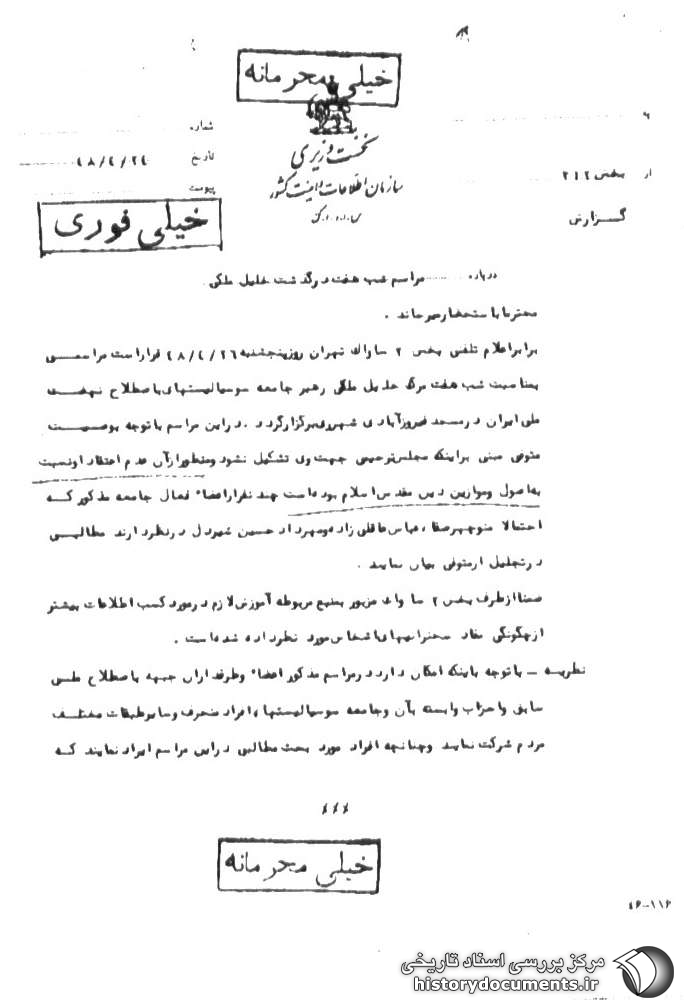 خیلی محرمانه
نخست وزیری
سازمان اطلاعات و امنیت کشور
س.ا.و.ا.ک
شماره
تاریخ ۴۸/۴/۲۴
پیوست
از بخش ۲۱۲
گزارش
خیلی فوری
درباره مراسم شب هفت درگذشت خلیل ملکی
محترما باستحضار میرساند .
برابر اعلام تلفنی بخش ۲ ساواک تهران روز پنجشنبه ۴۸/۴/۲۶ قرار است مراسمی
بمناسبت شب هفت مرگ خلیل ملکی رهبر جامعه سوسیالیستهای باصطلاح نهضت
ملی ایران در مسجد فیروزآبادی شهرری برگزار گردد . در این مراسم با توجه بوصیت
متوفی مبنی بر اینکه مجلس ترحیمی جهت وی تشکیل نشود و منظور از آن عدم اعتقاد او نسبت
به اصول و موازین دین مقدس اسلام بوده است چند نفر از اعضاء فعال جامعه مذکور که
احتمالا منوچهر صفا ، عباس عاقلی زاده و مهرداد حسین شیردل در نظر دارند مطالبی
در تجلیل از متوفی بیان نمایند .
ضمنا از طرف بخش ۲ ساواک مزبور بمنبع مربوطه آموزش لازم در مورد کسب اطلاعات بیشتر
از چگونگی مفاد سخنرانیهای اشخاص مورد نظر داده شده است .
نظریه ــ با توجه باینکه امکان دارد در مراسم مذکور اعضاء و طرفداران جبهه باصطلاح ملی
سابق و احزاب وابسته بآن و جامعه سوسیالیستها ، افراد منحرف و سایر طبقات مختلف
مردم شرکت نمایند و چنانچه افراد مورد بحث مطالبی در این مراسم ایراد نمایند که
خیلی محرمانه
۴۶-۱۱۶
مرکز بررسی اسناد تاریخی
historydocuments.ir